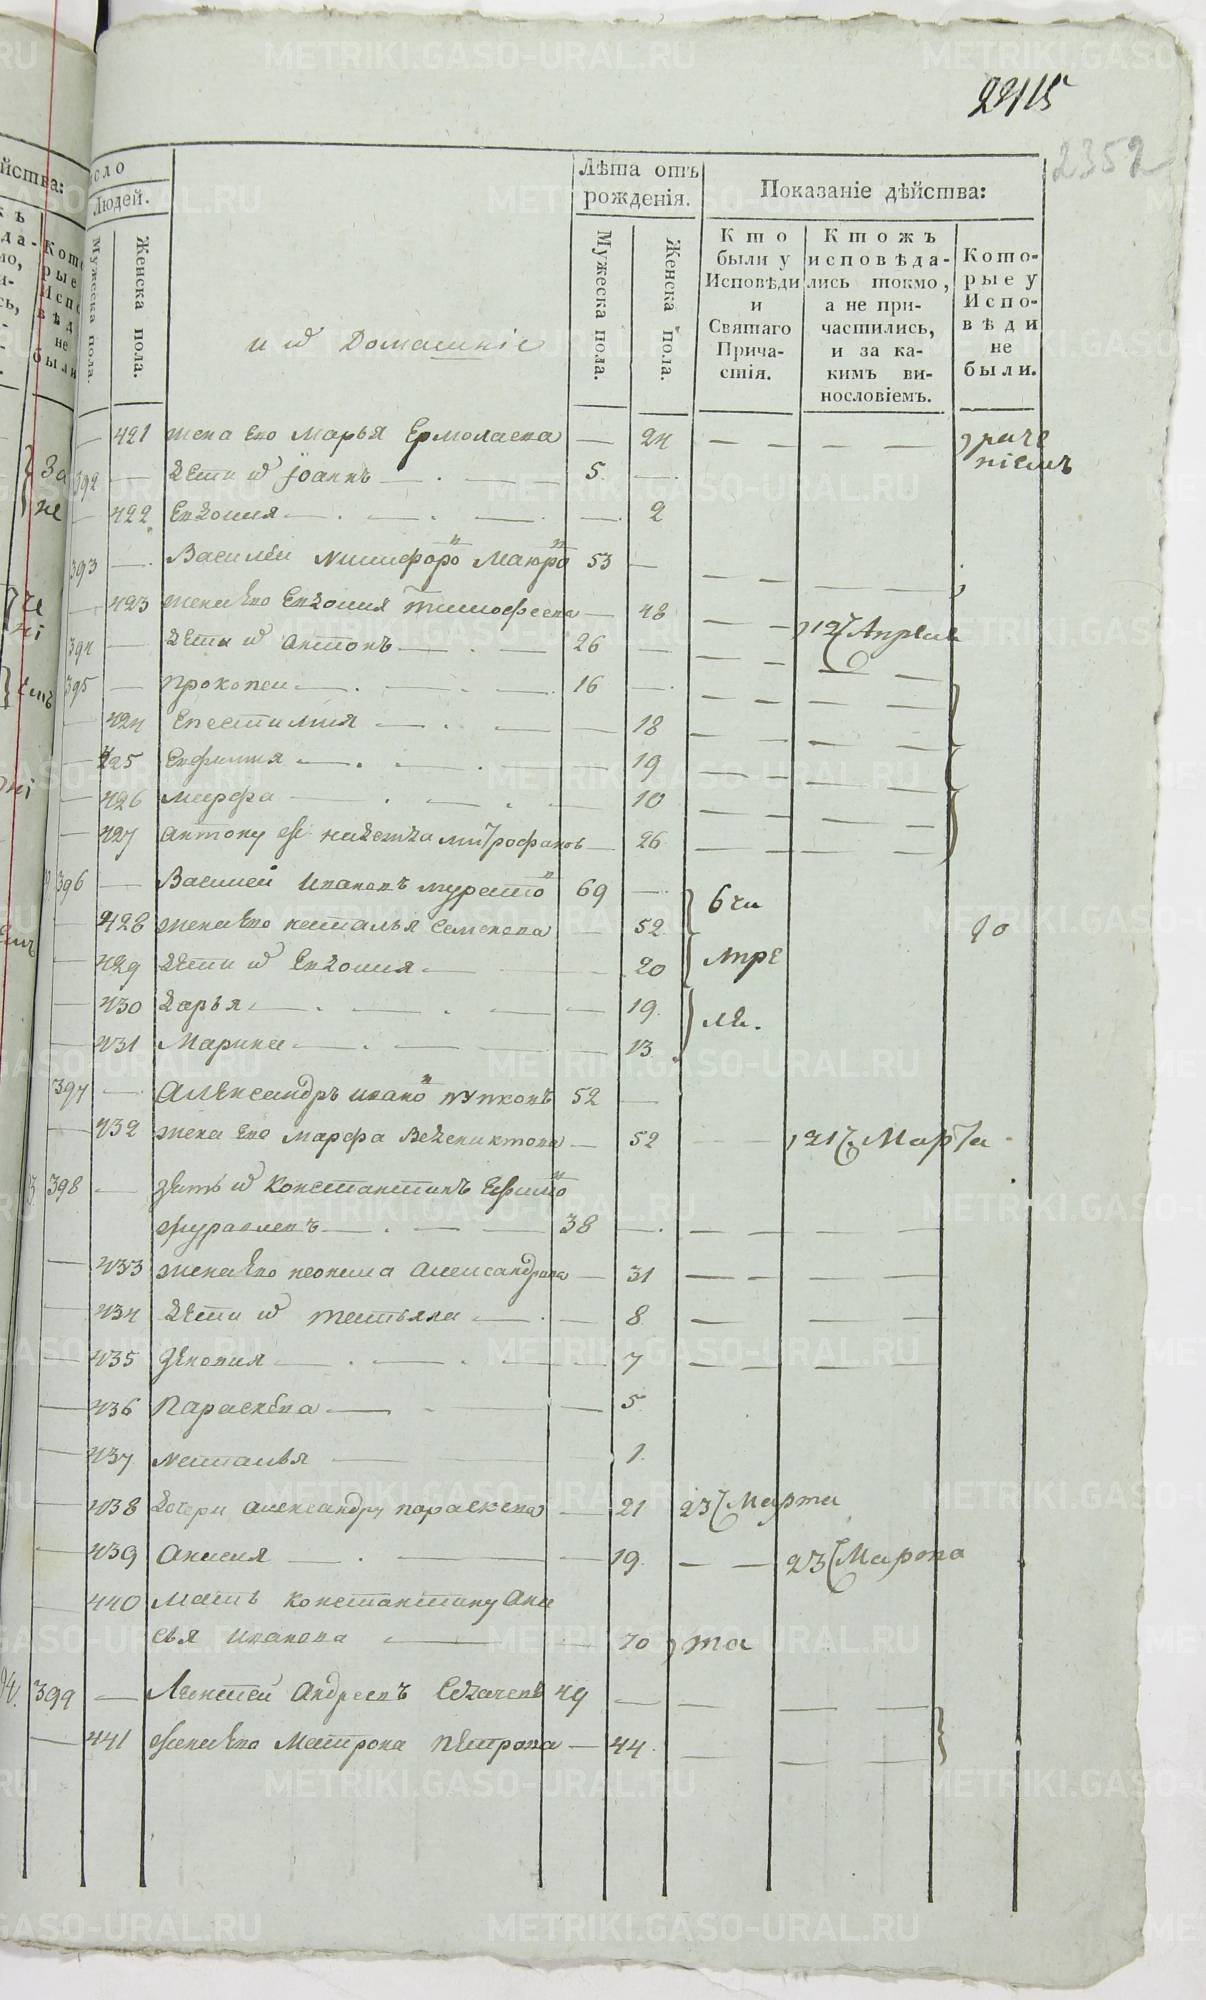 2352
сло
Людей.
Мужеска пола.
Женска пола.
Лѣта отъ рожденія.
Мужеска пола.
Женска пола.
Показаніе дѣйства:
Кто были у Исповѣди и Святаго Причастія.
Ктожъ исповѣдались токмо, а не причастились, и за какимъ винословіемъ.
Которые у Исповѣди не были.
и их Домашніе
421 жена Его Марья Ермолаева 24
392 Дети их Iоаннъ 5
422 Евдокия 2
393 Василеи Никифоро Макаро 53
423 жена Его Евдокия Тимофеева 48
394 Дети их Антонъ 26 12 Апреля
395 Прокопеи 16
424 18
425 Евфимия 19
426 Марфа 10
427 Антону 26
396 Василей Ивановъ 69
428 жена Его Наталья Семенова 52
429 Дети их Евдокия 20
430 Дарья 19
431 Марина 13
6 чи
Апре
ля.
397 Александръ Ивано 52
432 жена Его Марфа Венедиктова 52 21 Марта
398 зять их Константинъ Ефимо
Журавлевъ 38
433 жена Его Неонила Александрова 31
434 Дети их Татьяна 8
435 7
436 Параскева 5
437 Наталья 1
438 Дочери Александру Параскева 21 23 Марта
439 Анисия 19 23 Марта
440 Мать Константину Ани
сья Иванова 70 та
399 Алексей Андреевъ 49
441 жена Его Матрона Петрова 44
METRIKI.GASO-URAL.RU